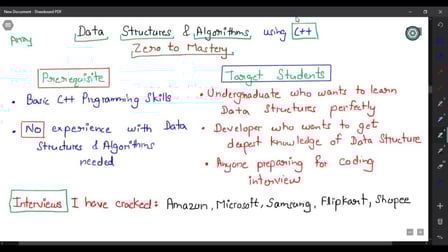 Data Structures & Algorithms using C++
Array
Zero to Mastery
Prerequisite
• Basic C++ Programming Skills
• No experience with Data
Structures and Algorithms
needed
Target Students
• Undergraduate who wants to learn
Data Structures perfectly
• Developer who wants to get
depest knowledge of Data Structure
• Anyone preparing for coding
interview
Interviews I have cracked: Amazon, Microsoft, Samsung, Flipkart, Shopee